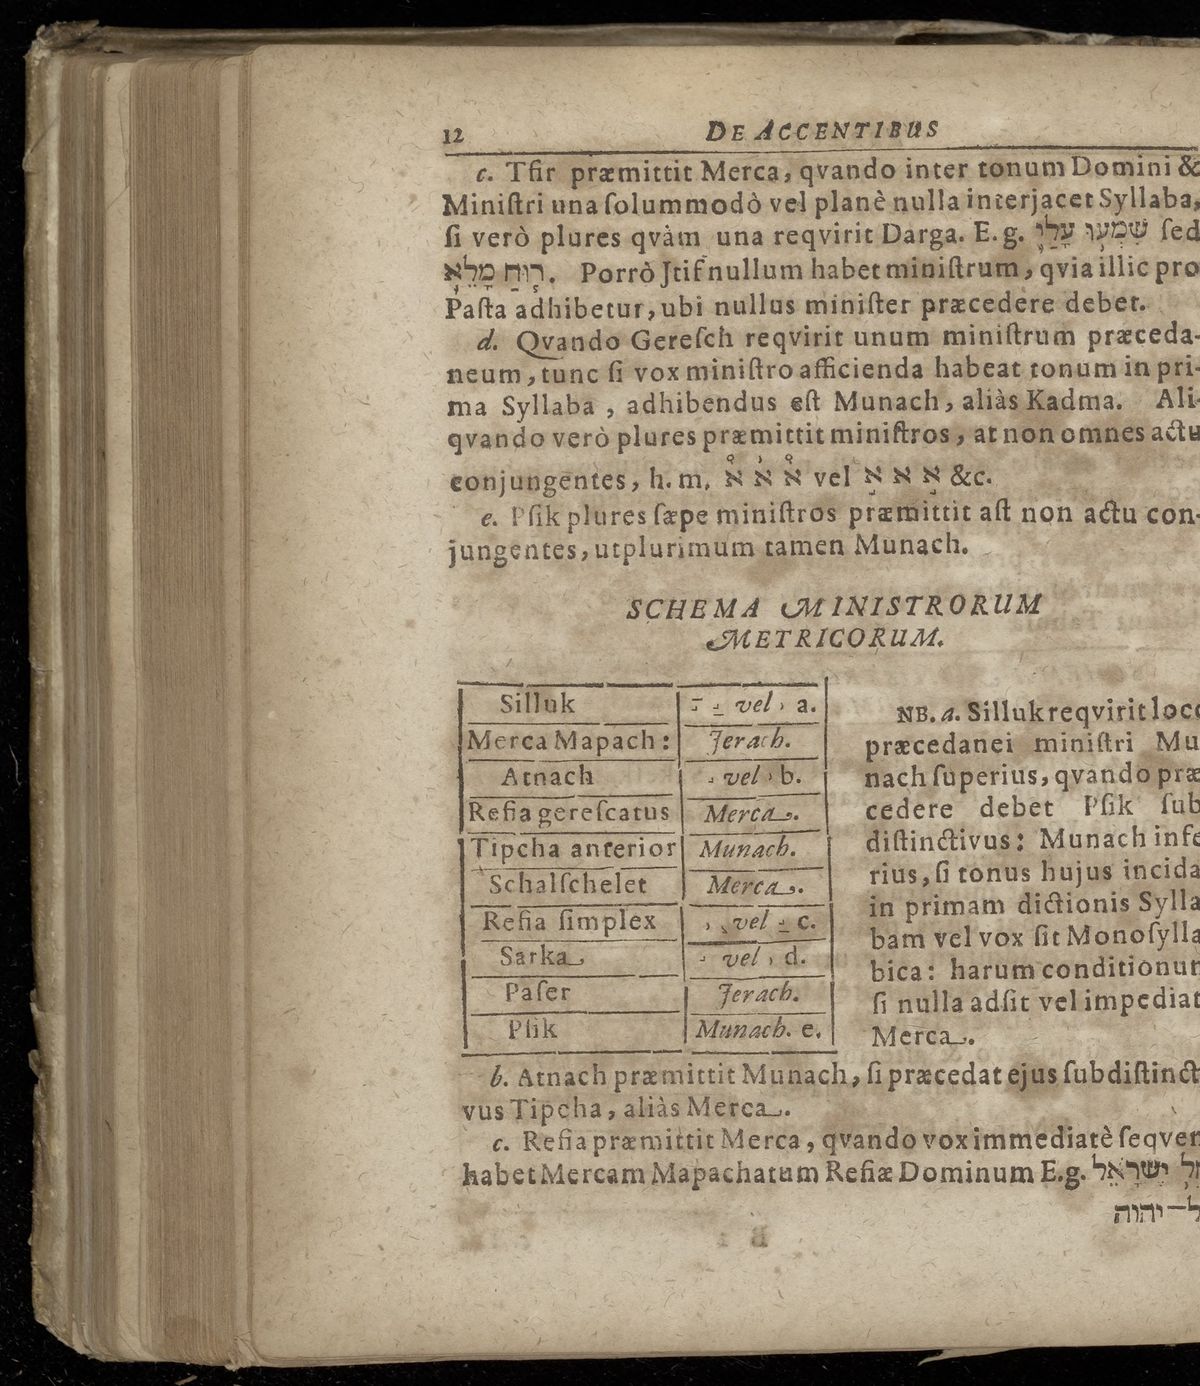 12 DE ACCENTIBUS
c. Tſir præmittit Merca, qvando inter tonum Domini &
Miniſtri una ſolummodò vel planè nulla interjacet Syllaba,
ſi verò plures qvàm una reqvirit Darga. E. g. שִׁמְעוּ עָלַי ſed
רוּחַ מָלֵא. Porrò Jtif nullum habet miniſtrum, qvia illic pro
Paſta adhibetur, ubi nullus miniſter præcedere debet.
d. Qvando Gereſch reqvirit unum miniſtrum præceda-
neum, tunc ſi vox miniſtro afficienda habeat tonum in pri-
ma Syllaba, adhibendus eſt Munach, aliàs Kadma. Ali-
qvando verò plures præmittit miniſtros, at non omnes actu
conjungentes, h. m. א א א vel א א א &c.
e. Pſik plures ſæpe miniſtros præmittit aſt non actu con-
jungentes, utplurimum tamen Munach.
SCHEMA MINISTRORUM
METRICORUM.
Silluk vel a.
Merca Mapach: Jerach.
Atnach vel b.
Refia gereſcatus Merca.
Tipcha anterior Munach.
Schalſchelet Merca.
Refia ſimplex vel c.
Sarka vel d.
Paſer Jerach.
Pſik Munach. e.
NB. a. Silluk reqvirit loco
præcedanei miniſtri Mu
nach ſuperius, qvando præ
cedere debet Pſik ſub
diſtinctivus: Munach infe
rius, ſi tonus hujus incida
in primam dictionis Sylla
bam vel vox ſit Monoſylla
bica: harum conditionum
ſi nulla adſit vel impediat
Merca.
b. Atnach præmittit Munach, ſi præcedat ejus ſubdiſtincti
vus Tipcha, aliàs Merca.
c. Refia præmittit Merca, qvando vox immediatè ſeqven
habet Mercam Mapachatum Refiæ Dominum E. g. יִשְׂרָאֵל
ל־יהוה